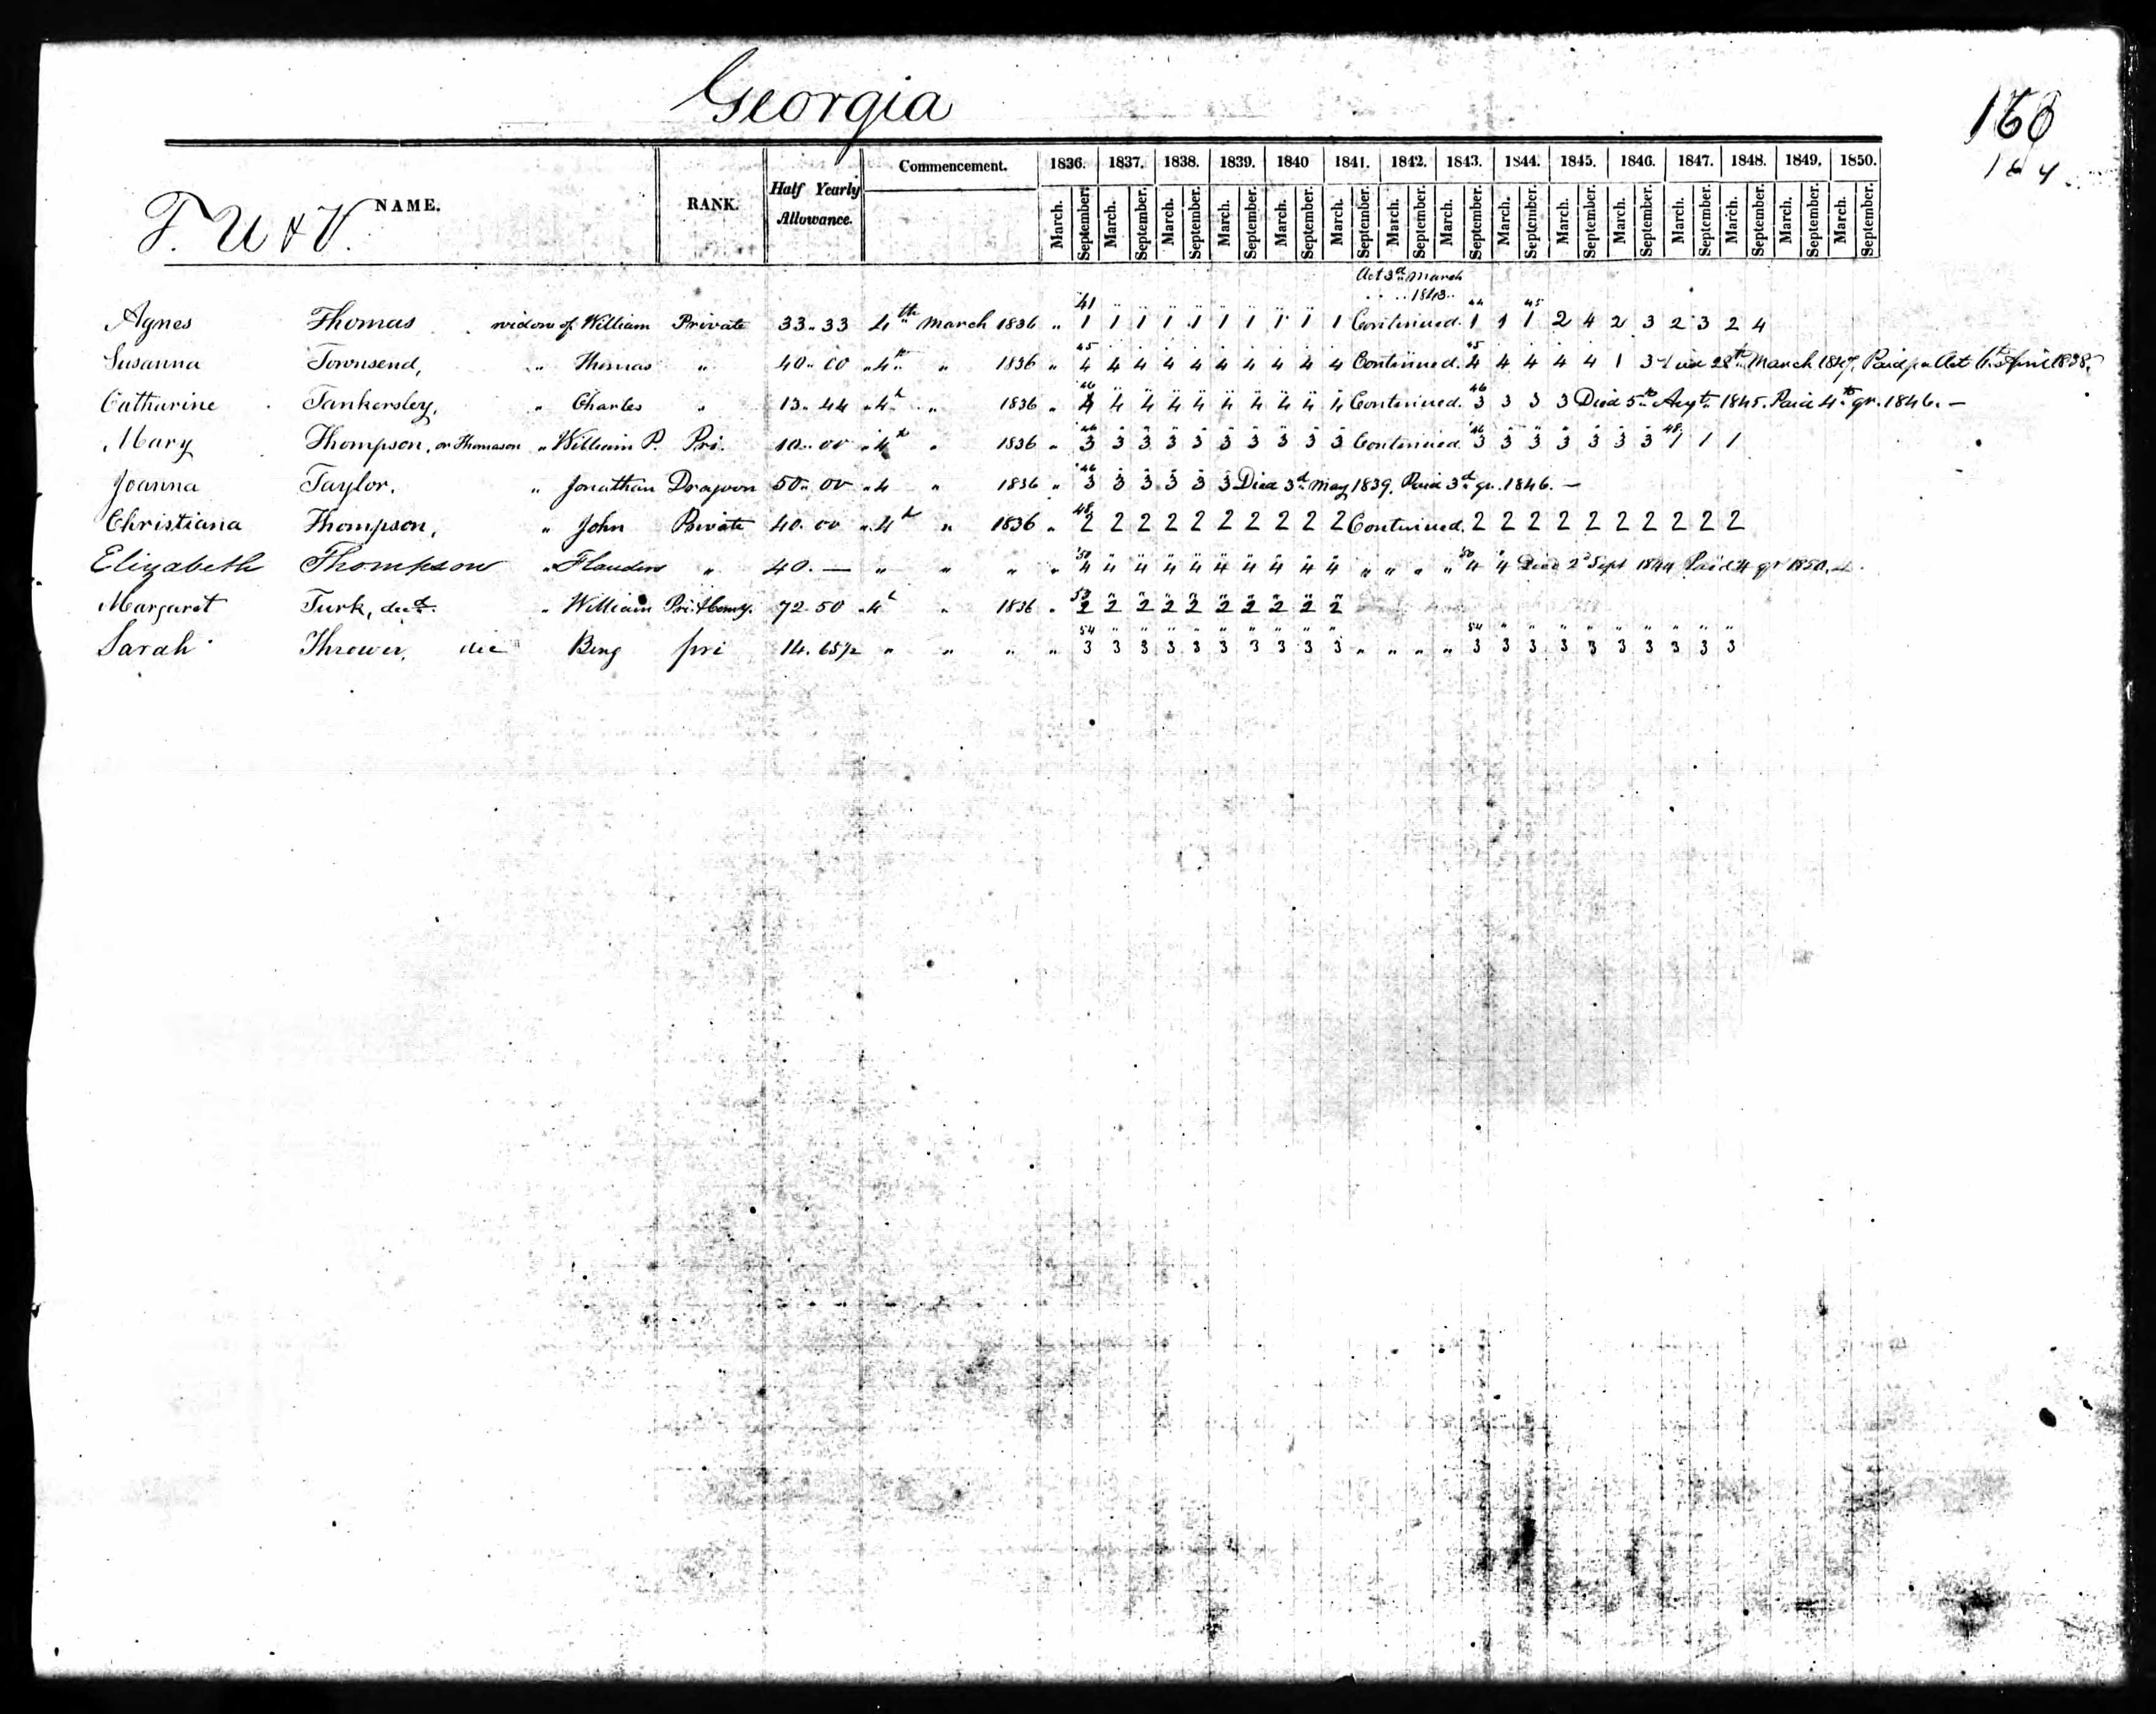 Georgia
160
164
T. U & V. NAME. RANK. Half Yearly Allowance. Commencement. 1836. 1837. 1838. 1839. 1840 1841. 1842. 1843. 1844. 1845. 1846. 1847. 1848. 1849. 1850.
March. September. March. September. March. September. March. September. March. September. March. September. March. September. March. September. March. September. March. September. March. September. March. September. March. September. March. September. March. September.
Act 3d March
1843
Agnes Thomas widow of William Private 33.33 4th March 1836 " 41 1 1 1 1 1 1 1 1 1 1 Continued. 44 1 1 45 1 2 4 2 3 2 3 2 4
Susanna Townsend, " Thomas " 40.00 " 4th " 1836 " 45 4 4 4 4 4 4 4 4 4 4 Continued. 45 4 4 4 4 4 1 3 Died 28th March 1847. Paid Act 6th April 1838.
Catharine Tankersley, " Charles " 13.44 " 4th " 1836 " 46 4 4 4 4 4 4 4 4 4 4 Continued. 46 3 3 3 3 Died 5th Augt. 1845. Paid 4th qr. 1846. —
Mary Thompson, or Thomason " William P. Pri. 10.00 " 4th " 1836 " 46 3 3 3 3 3 3 3 3 3 3 Continued 46 3 3 3 3 3 3 3 48 1 1 1
Joanna Taylor. " Jonathan Dragoon 50.00 " 4 " 1836 " 46 3 3 3 3 3 3 Died 3d May 1839. Paid 3d qr. 1846. —
Christiana Thompson, " John Private 40.00 " 4th " 1836 " 48 2 2 2 2 2 2 2 2 2 2 Continued. 2 2 2 2 2 2 2 2 2 2
Elizabeth Thompson " Flanders " 40. — " " " " 50 4 4 4 4 4 4 4 4 4 4 " " " " 50 4 4 Died 2d Sept 1844 Paid 4 qr 1850.
Margaret Turk, decd. " William Pri. 72.50 " 4th " 1836 " 53 2 2 2 2 2 2 2 2 2 2
Sarah Thrower, Pri 14.65½ " " " " 54 3 3 3 3 3 3 3 3 3 3 " " " " 54 3 3 3 3 3 3 3 3 3 3